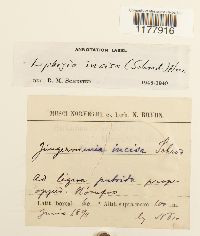 1177916
ANNOTATION LABEL
Lophozia incisa (Schrad.) Dum.
DET. R. M. SCHUSTER 1938-1940
MUSCI NORVEGICI ex herb. N. BRYHN.
Jungermannia incisa Schrad.
Ad ligna putrida prope
oppid. Hönefos
Latit. boreal. 60 Altit. supramar. 100
Junio 18
leg.